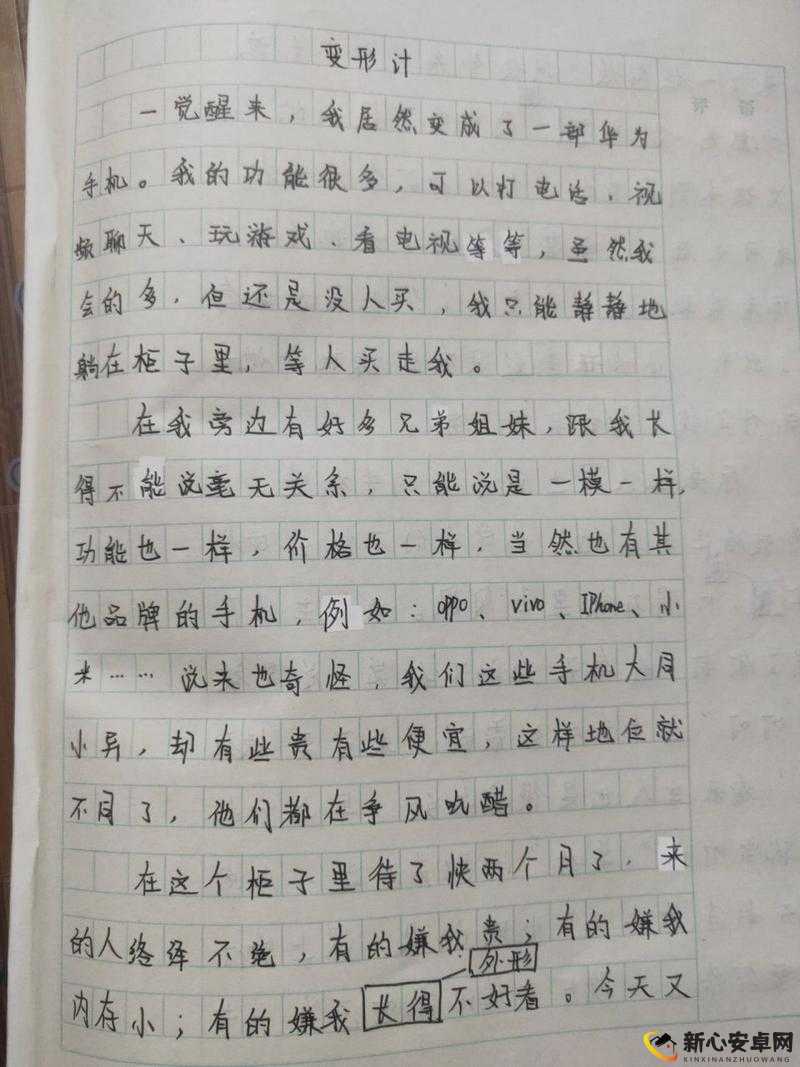 变形计
一觉醒来，我居然变成了一部华为
手机。我的功能很多，可以打电话、视
频聊天、玩游戏、看电视等等，虽然我
会的多，但还是没人买，我只能静静地
躺在柜子里，等人买走我。
在我旁边有好多兄弟姐妹，跟我长
得不能说毫无关系，只能说是一模一样，
功能也一样，价格也一样，当然也有其
他品牌的手机，例如：oppo、vivo、IPhone、小
米……说来也奇怪，我们这些手机大同
小异，却有些贵有些便宜，这样地位就
不同了，他们都在争风吃醋。
在这个柜子里待了快两个月了，来
的人络绎不绝，有的嫌我贵；有的嫌我
外形
内存小；有的嫌我长得不好看。今天又
评语
新心安卓网
XINXINANZHUOWANG